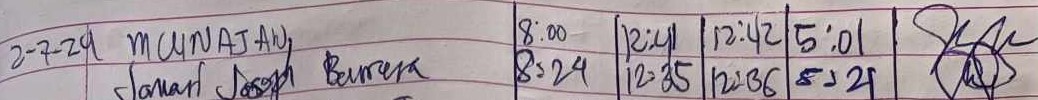 2-7-24 MUNAJAN, 8:00 12:41 12:42 5:01
Joseph Barrera 8:24 12:35 12:36 5:21